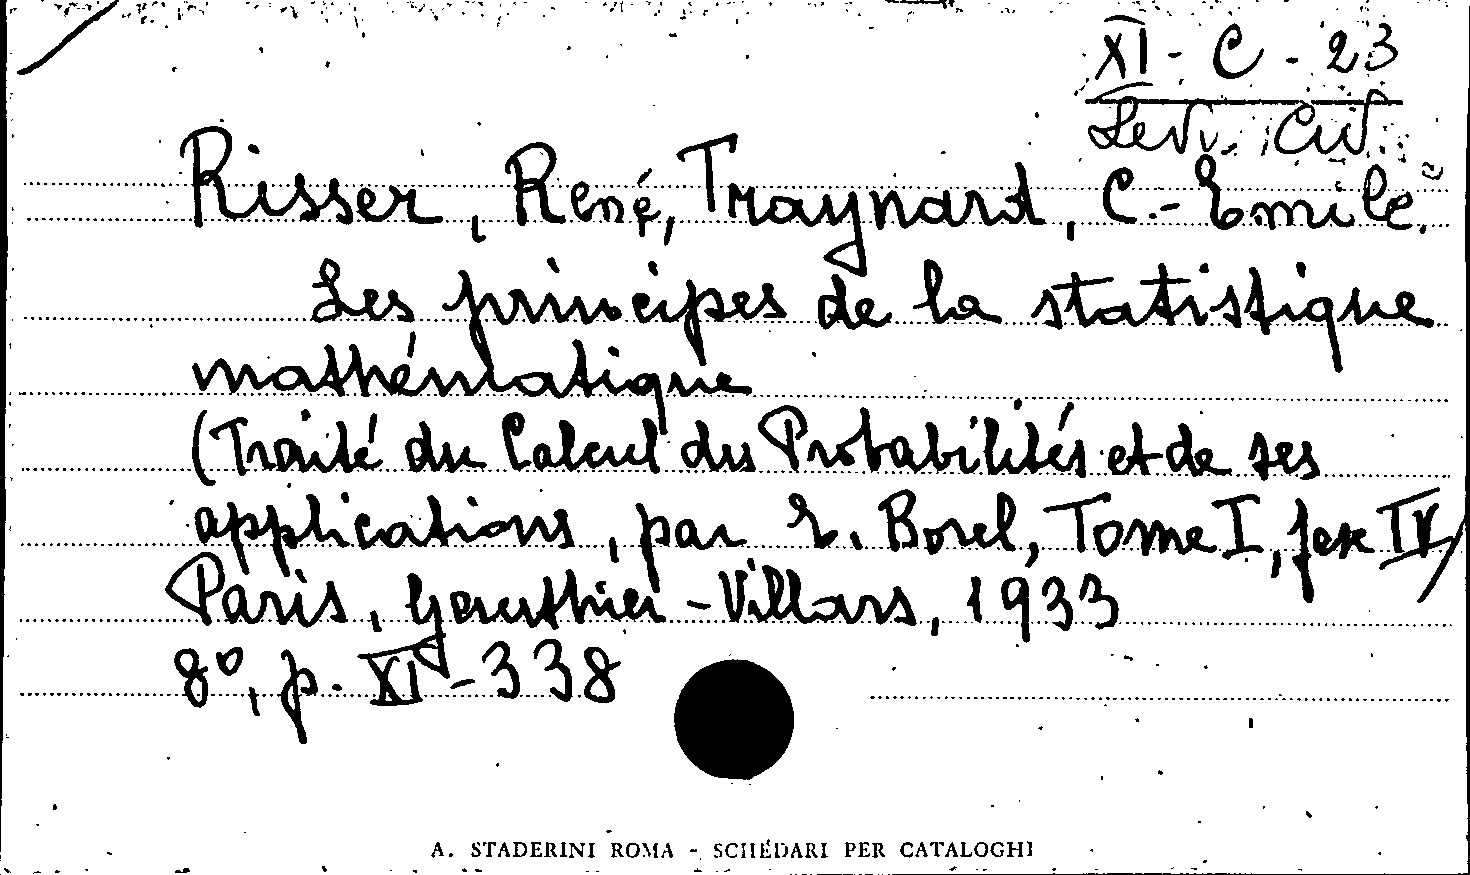 XI - C - 23
Levi. Civ.
Risser, René, Traynard, C.-Emile.
Les principes de la statistique
mathématique
(Traité du Calcul des Probabilités et de ses
applications, par E. Borel, Tome I, fasc IV)
Paris, Gauthier-Villars, 1933
8º, p. XI-338
A. STADERINI ROMA - SCHEDARI PER CATALOGHI